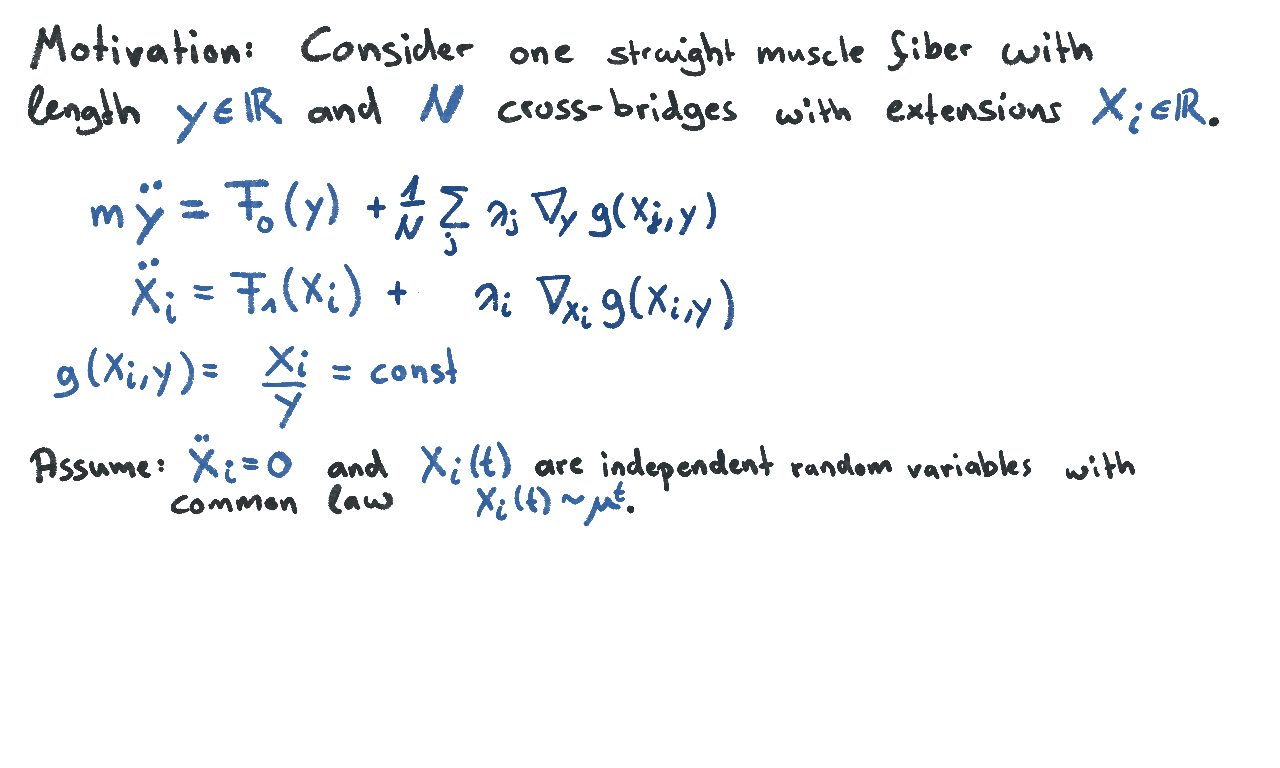 Motivation: Consider one straight muscle fiber with
length y∈ℝ and N cross-bridges with extensions Xᵢ∈ℝ.
m ÿ = F₀(y) + 1/N Σⱼ λⱼ ∇_y g(xⱼ,y)
Ẍᵢ = F₁(Xᵢ) + λᵢ ∇_{xᵢ} g(xᵢ,y)
g(Xᵢ,y) = Xᵢ/y = const
Assume: Ẍᵢ=0 and Xᵢ(t) are independent random variables with
common law Xᵢ(t) ~ μᵗ.